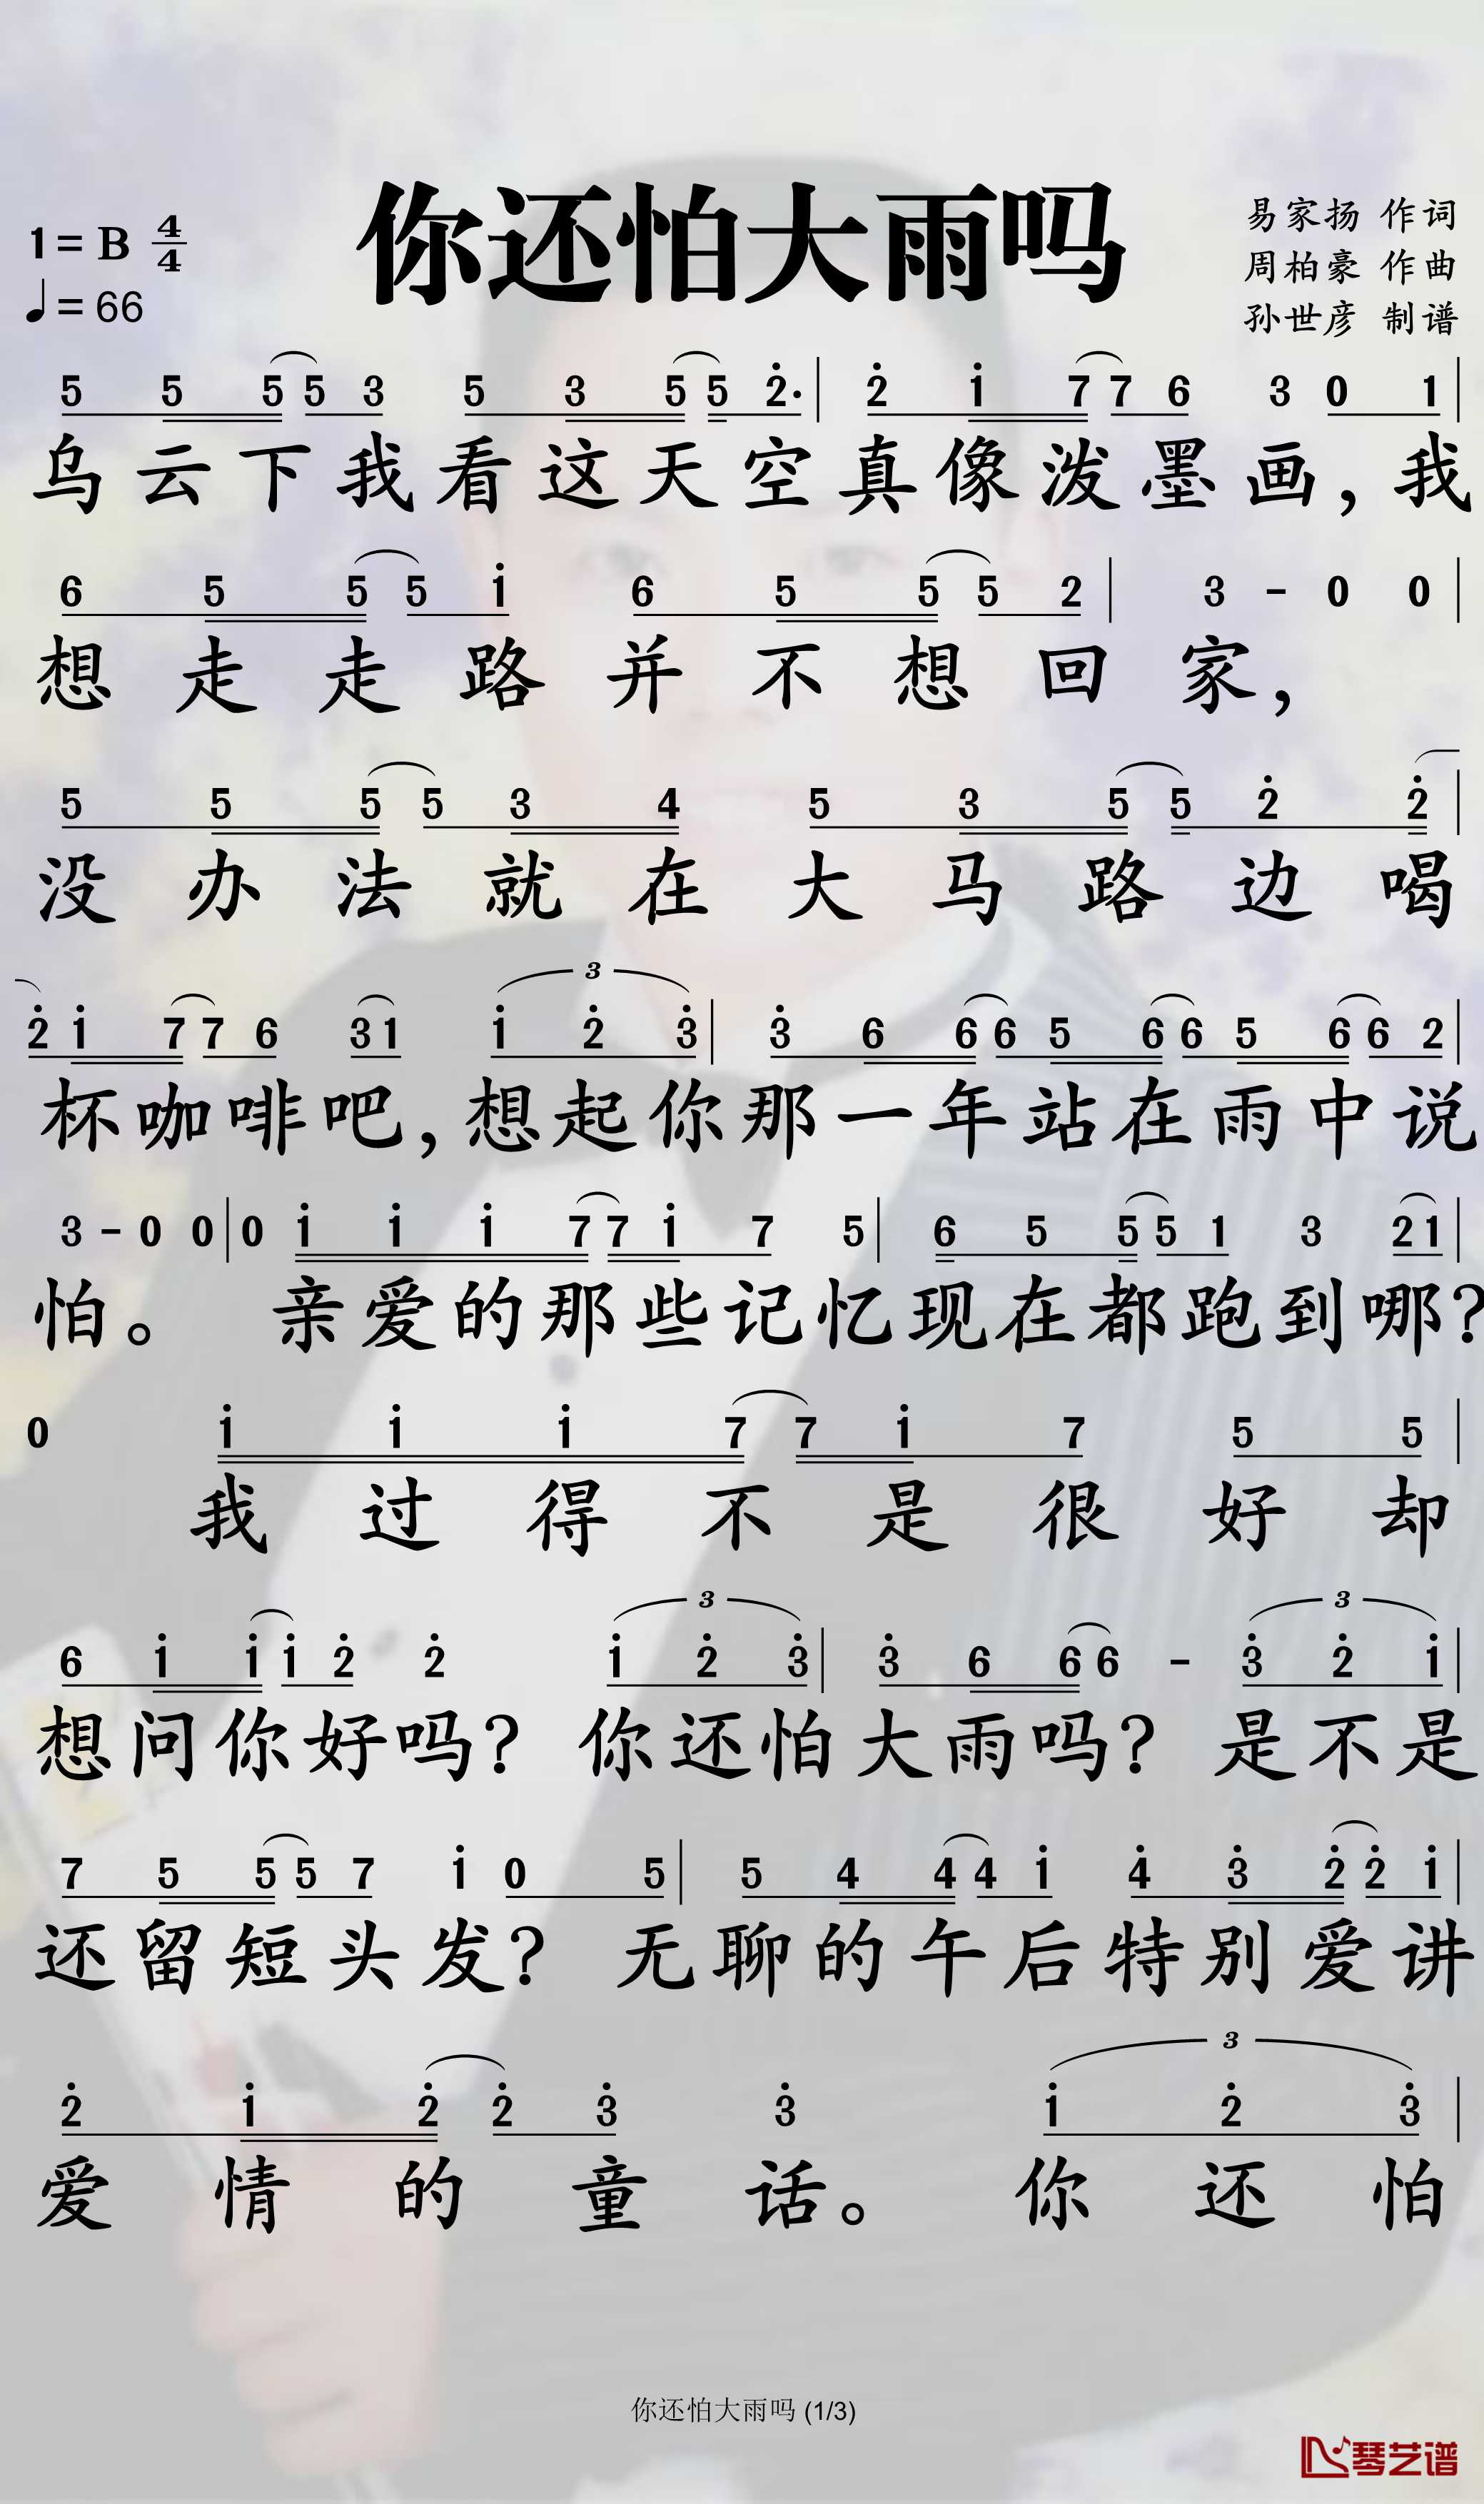 你还怕大雨吗
1 = B 4/4
♩ = 66
易家扬 作词
周柏豪 作曲
孙世彦 制谱
5 5 5 5 3 5 3 5 5 2̇· | 2̇ 1̇ 7 7 6 3 0 1 |
乌云下我看这天空真像泼墨画，我
6 5 5 5 1̇ 6 5 5 5 2 | 3 - 0 0 |
想走走路并不想回家，
5 5 5 5 3 4 5 3 5 5 2̇ 2̇ |
没办法就在大马路边喝
2̇ 1̇ 7 7 6 3 1 3 1̇ 2̇ 3̇ | 3̇ 6 6 6 5 6 6 5 6 6 2 |
杯咖啡吧，想起你那一年站在雨中说
3 - 0 0 | 0 1̇ 1̇ 1̇ 7 7 1̇ 7 5 | 6 5 5 5 1 3 2 1 |
怕。 亲爱的那些记忆现在都跑到哪？
0 1̇ 1̇ 1̇ 7 7 1̇ 7 5 5 |
我过得不是很好却
3 3
6 1̇ 1̇ 1̇ 2̇ 2̇ 1̇ 2̇ 3̇ | 3̇ 6 6 6 - 3̇ 2̇ 1̇ |
想问你好吗？ 你还怕大雨吗？ 是不是
7 5 5 5 7 1̇ 0 5 | 5 4 4 4 1̇ 4̇ 3̇ 2̇ 2̇ 1̇ |
还留短头发？ 无聊的午后特别爱讲
3
2̇ 1̇ 2̇ 2̇ 3̇ 3̇ 1̇ 2̇ 3̇ |
爱情的童话。 你还怕
你还怕大雨吗 (1/3)
琴艺谱